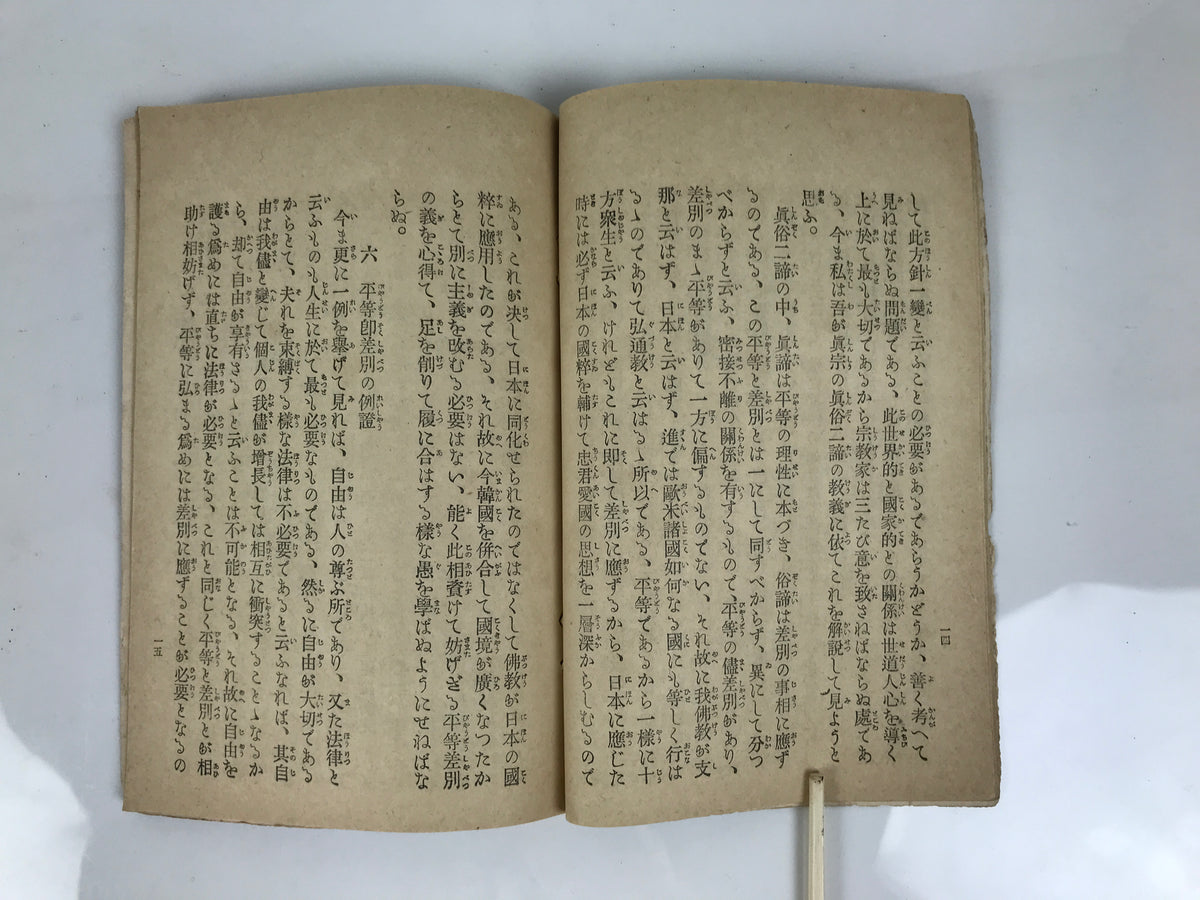 一四
して此方針一變と云ふことの必要があるであらうかどうか、善く考へて
見ねばならぬ問題である、此世界的と國家的との關係は世道人心を導く
上に於て最も大切であるから宗教家は三たび意を致さねばならぬ處であ
る、今ま私は吾が眞宗の眞俗二諦の教義に依てこれを解説して見ようと
思ふ。
眞俗二諦の中、眞諦は平等の理性に本づき、俗諦は差別の事相に應ず
るのである、この平等と差別とは一にして同すべからず、異にして分つ
べからずと云ふ、密接不離の關係を有するもので、平等の儘差別があり、
差別のまゝ平等がありて一方に偏するものでない、それ故に我佛教が支
那と云はず、日本と云はず、進では歐米諸國如何なる國にも等しく行は
るゝのでありて弘通教と云はるゝ所以である、平等であるから一樣に十
方衆生と云ふ、けれどもこれに即して差別に應ずるから、日本に應じた
時には必ず日本の國粹を輔けて忠君愛國の思想を一層深からしむるので
ある、これが決して日本に同化せられたのではなくして佛教が日本の國
粹に應用したのである、それ故に今韓國を併合して國境が廣くなつたか
らとて別に主義を改むる必要はない、能く此相資けて妨げざる平等差別
の義を心得て、足を削りて履に合はする樣な愚を學ばぬようにせねばな
らぬ。
六 平等卽差別の例證
今ま更に一例を擧げて見れば、自由は人の尊ぶ所であり、又た法律と
云ふものも人生に於て最も必要なものである、然るに自由が大切である
からとて、夫れを束縛する樣な法律は不必要であると云ふなれば、其自
由は我儘と變じて個人の我儘が增長しては相互に衝突することゝなるか
ら、却て自由が享有さるゝと云ふことは不可能となる、それ故に自由を
護る爲めには直ちに法律が必要となる、これと同じく平等と差別とが相
助け相妨げず、平等に弘まる爲めには差別に應ずることが必要となるの
一五